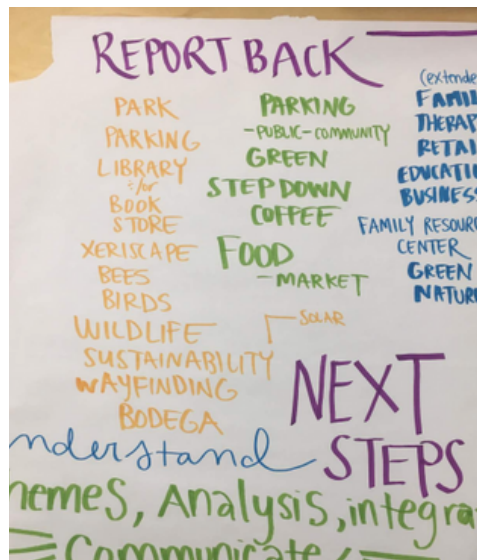 REPORT BACK
PARK
PARKING
LIBRARY
&/or
BOOK
STORE
XERISCAPE
BEES
BIRDS
WILDLIFE
SUSTAINABILITY
WAYFINDING
BODEGA
PARKING
-PUBLIC-COMMUNITY
GREEN
STEP DOWN
COFFEE
FOOD
-MARKET
SOLAR
(extende
FAMIL
THERAP
RETAI
EDUCATI
BUSINESS
FAMILY RESOUR
CENTER
GREEN
NATUR
NEXT
STEPS
nderstand
hemes, Analysis, integra
Communicate